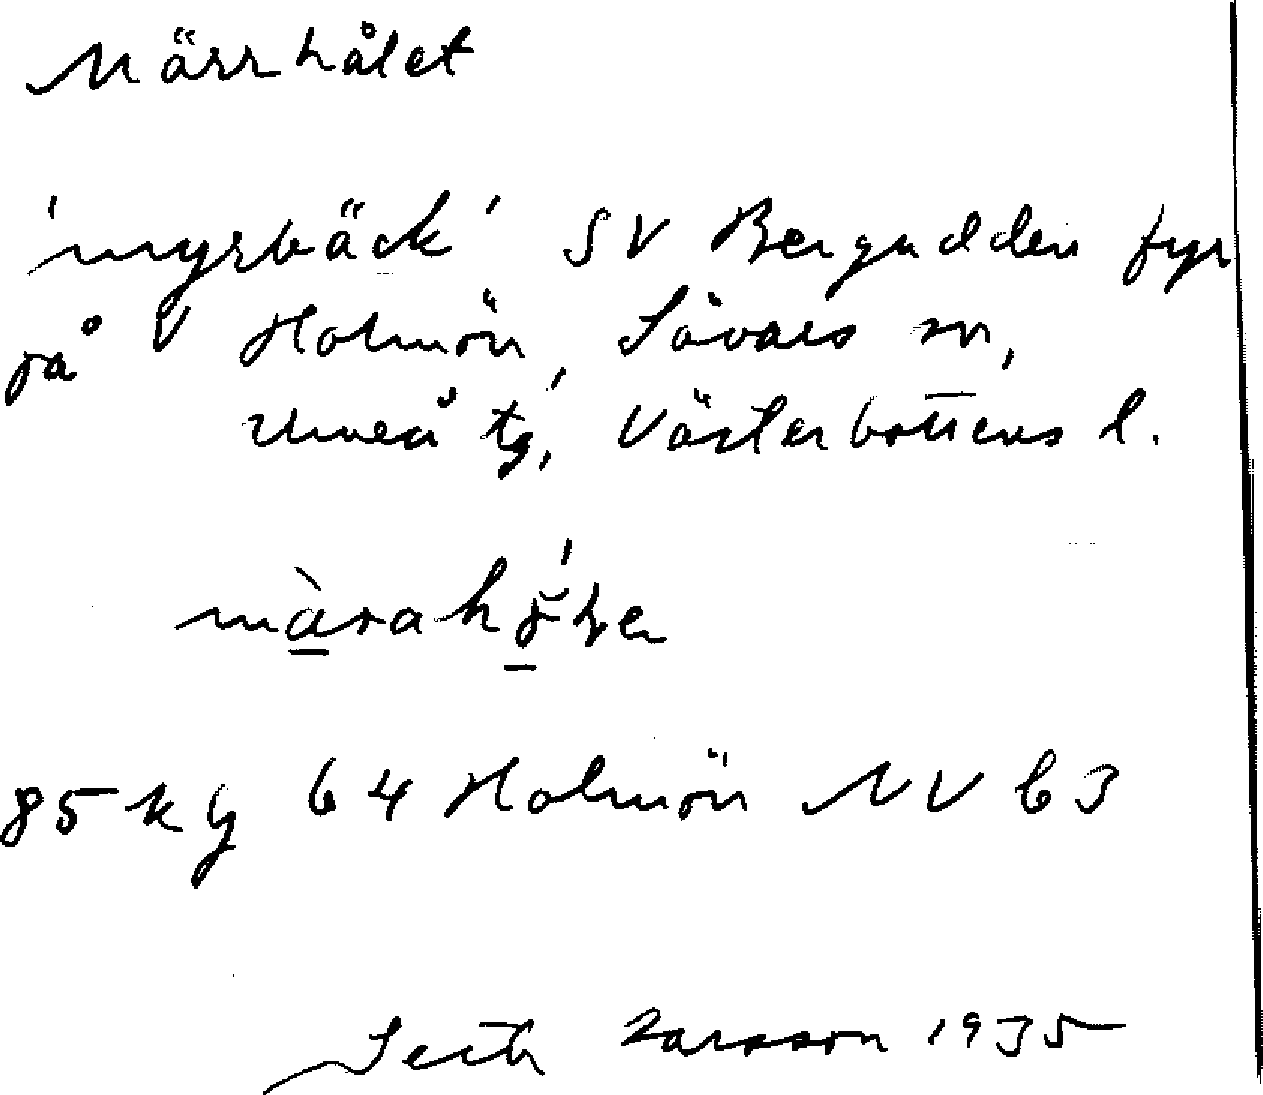 Märrhålet
'myrbäck' SV Bergudden fyr
på V Holmön, Sävars sn,
Umeå tg, Västerbottens l.
85 kg 64 Holmön NV b3
Seth Larsson 1935